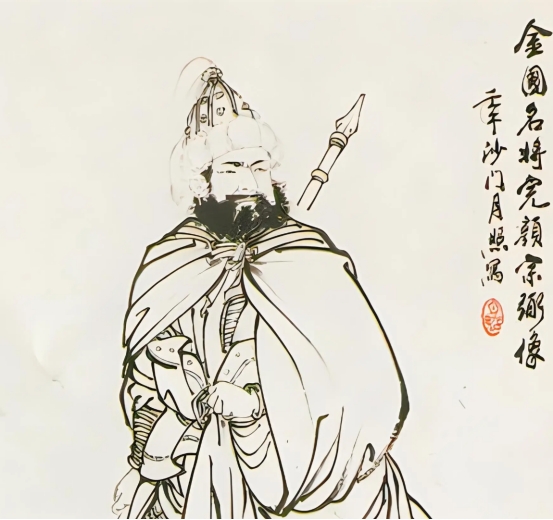 金國名将完顔宗弼像
沙门月照写